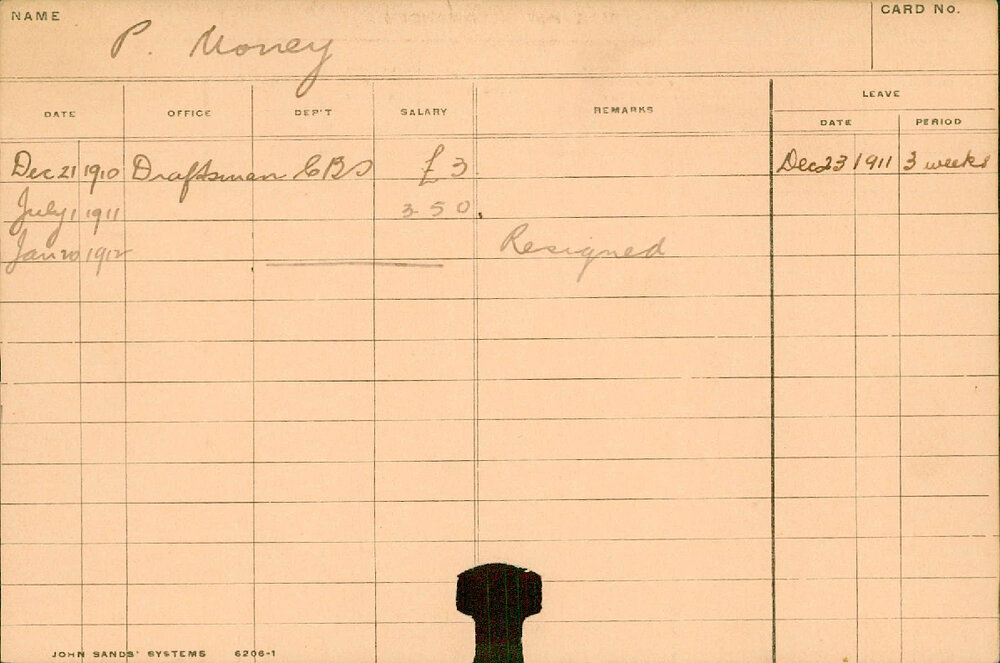 NAME P. Money CARD No.
LEAVE
DATE OFFICE DEP'T SALARY REMARKS DATE PERIOD
Dec 21 1910 Draftsman CBS £3 Dec 23 1911 3 weeks
July 1 1911 3 5 0
Jan 20 1912 Resigned
JOHN SANDS' SYSTEMS 6206-1